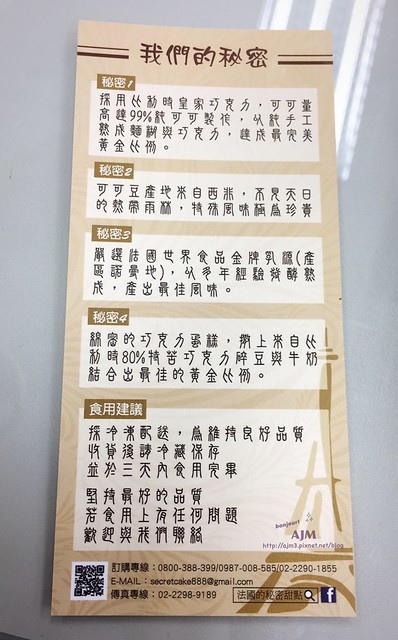 我們的秘密
秘密1
採用比利時皇家巧克力，可可量
高達99%純可可製作，以純手工
熟成麵糊與巧克力，達成最完美
黃金比例。
秘密2
可可豆產地來自西非，不見天日
的熱帶雨林，特殊風味極為珍貴
秘密3
嚴選法國世界食品金牌乳源(產
區諾曼地)，以多年經驗發酵熟
成，產出最佳風味。
秘密4
綿密的巧克力蛋糕，撒上來自比
利時80%特苦巧克力碎豆與牛奶
結合出最佳的黃金比例。
食用建議
採冷凍配送，為維持良好品質
收貨後請冷藏保存
並於三天內食用完畢
堅持最好的品質
若食用上有任何問題
歡迎與我們聯絡
bonjour!
AJM
http://ajm3.pixnet.net/blog
訂購專線：0800-388-399/0987-008-585/02-2290-1855
E-MAIL：secretcake888@gmail.com
傳真專線：02-2298-9189 法國的秘密甜點 f